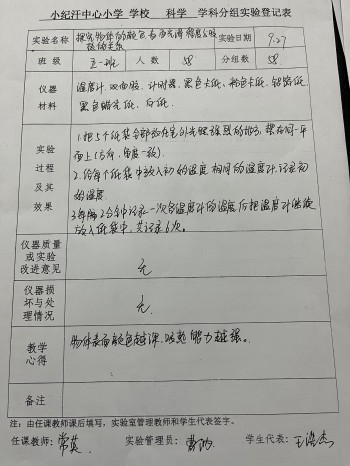 小纪汗中心小学 学校 科学 学科分组实验登记表
实验名称 探究物体的颜色与吸光得热本领的关系 实验日期 9.27
班级 五一班 人数 58 分组数 58
仪器材料 温度计、双面胶、计时器、黑色卡纸、粉色卡纸、铝箔纸、黑色蜡光纸、白纸
实验过程及其效果
1.把5个纸袋全部放在室外光照强烈的地方,摆在同一平面上(方向、角度一致)。
2.给每个纸袋中放入初始温度相同的温度计,记录初始温度。
3.每隔2分钟记录一次各温度计的温度后把温度计继续放入纸袋中,共记录6次。
仪器质量或实验改进意见 无
仪器损坏与处理情况 无
教学心得 物体表面颜色越深,吸热能力越强。
备注
注:由任课教师课后填写,实验室管理教师和学生代表签字。
任课教师: 常英 实验管理员: 学生代表: 王浩杰